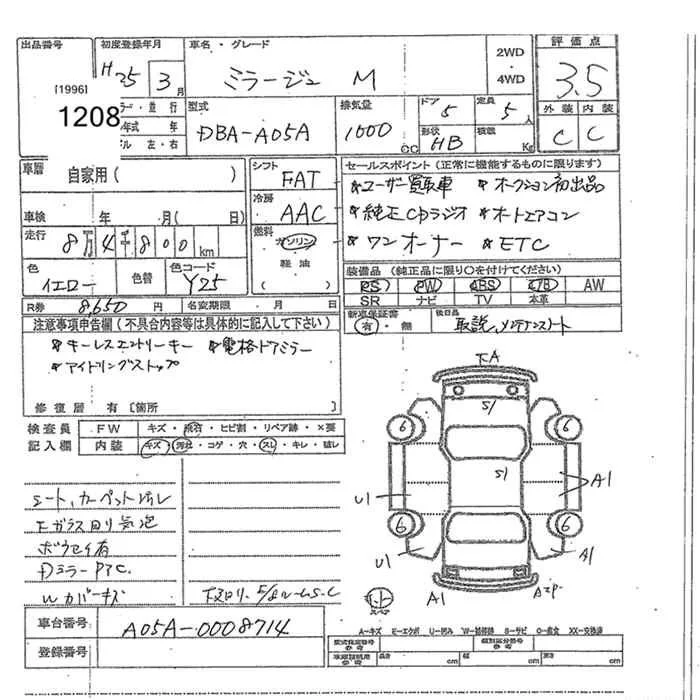 出品番号 初度登録年月 車名・グレード 2WD・4WD 評価点
[1996] H25 3月 ミラージュ M 3.5
1208 型式 排気量 ドア 定員 外装 内装
DBA-A05A 1000cc 5 5人 C C
形状 HB 積載 Kg
車歴 自家用( ) シフト FAT セールスポイント(正常に機能するものに限ります)
*ユーザー買取車 *オークション初出品
車検 年 月( 日) 冷房 AAC *純正CDラジオ *オートエアコン
走行 8万4千800km 燃料 ガソリン *ワンオーナー *ETC
軽油
( )
色 イエロー 色替 色コード Y25 装備品(純正品に限り○を付けてください)
PS PW ABS エアB AW
SR ナビ TV 本革
R券 8,650円 名変期限 月 日
新車保証書 有・無 後日品 取説、メンテナンスノート
注意事項申告欄(不具合内容等は具体的に記入して下さい)
*キーレスエントリーキー *電格ドアミラー
*アイドリングストップ
修復歴 有〔箇所 〕
検査員 FW キズ・飛石・ヒビ割・リペア跡・×要
記入欄 内装 キズ・汚れ・コゲ・穴・スレ・キレ・破レ
シート、カーペット汚レ
Fガラス回り気泡
ボウセイ有
DミラーPTC.
Wカバーキズ
下A
S1
6 6
S1
U1 A1
6 6
U1 A1
A1
スペア
車台番号 A05A-0008714
登録番号
A-キズ E-エクボ U-凹み W-補修跡 S-サビ C-腐食 XX-交換済
型式指定番号 参考 類別区分番号 参考
車庫証明用 参考 長さ cm 幅 cm 高さ cm